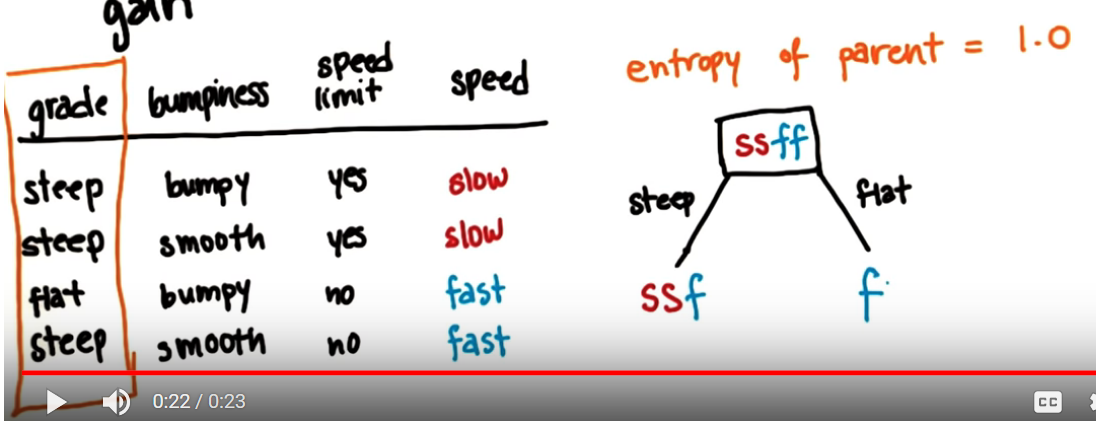 gain
grade bumpiness speed limit speed
steep bumpy yes slow
steep smooth yes slow
flat bumpy no fast
steep smooth no fast
entropy of parent = 1.0
ssff
steep flat
ssf f
0:22 / 0:23
CC